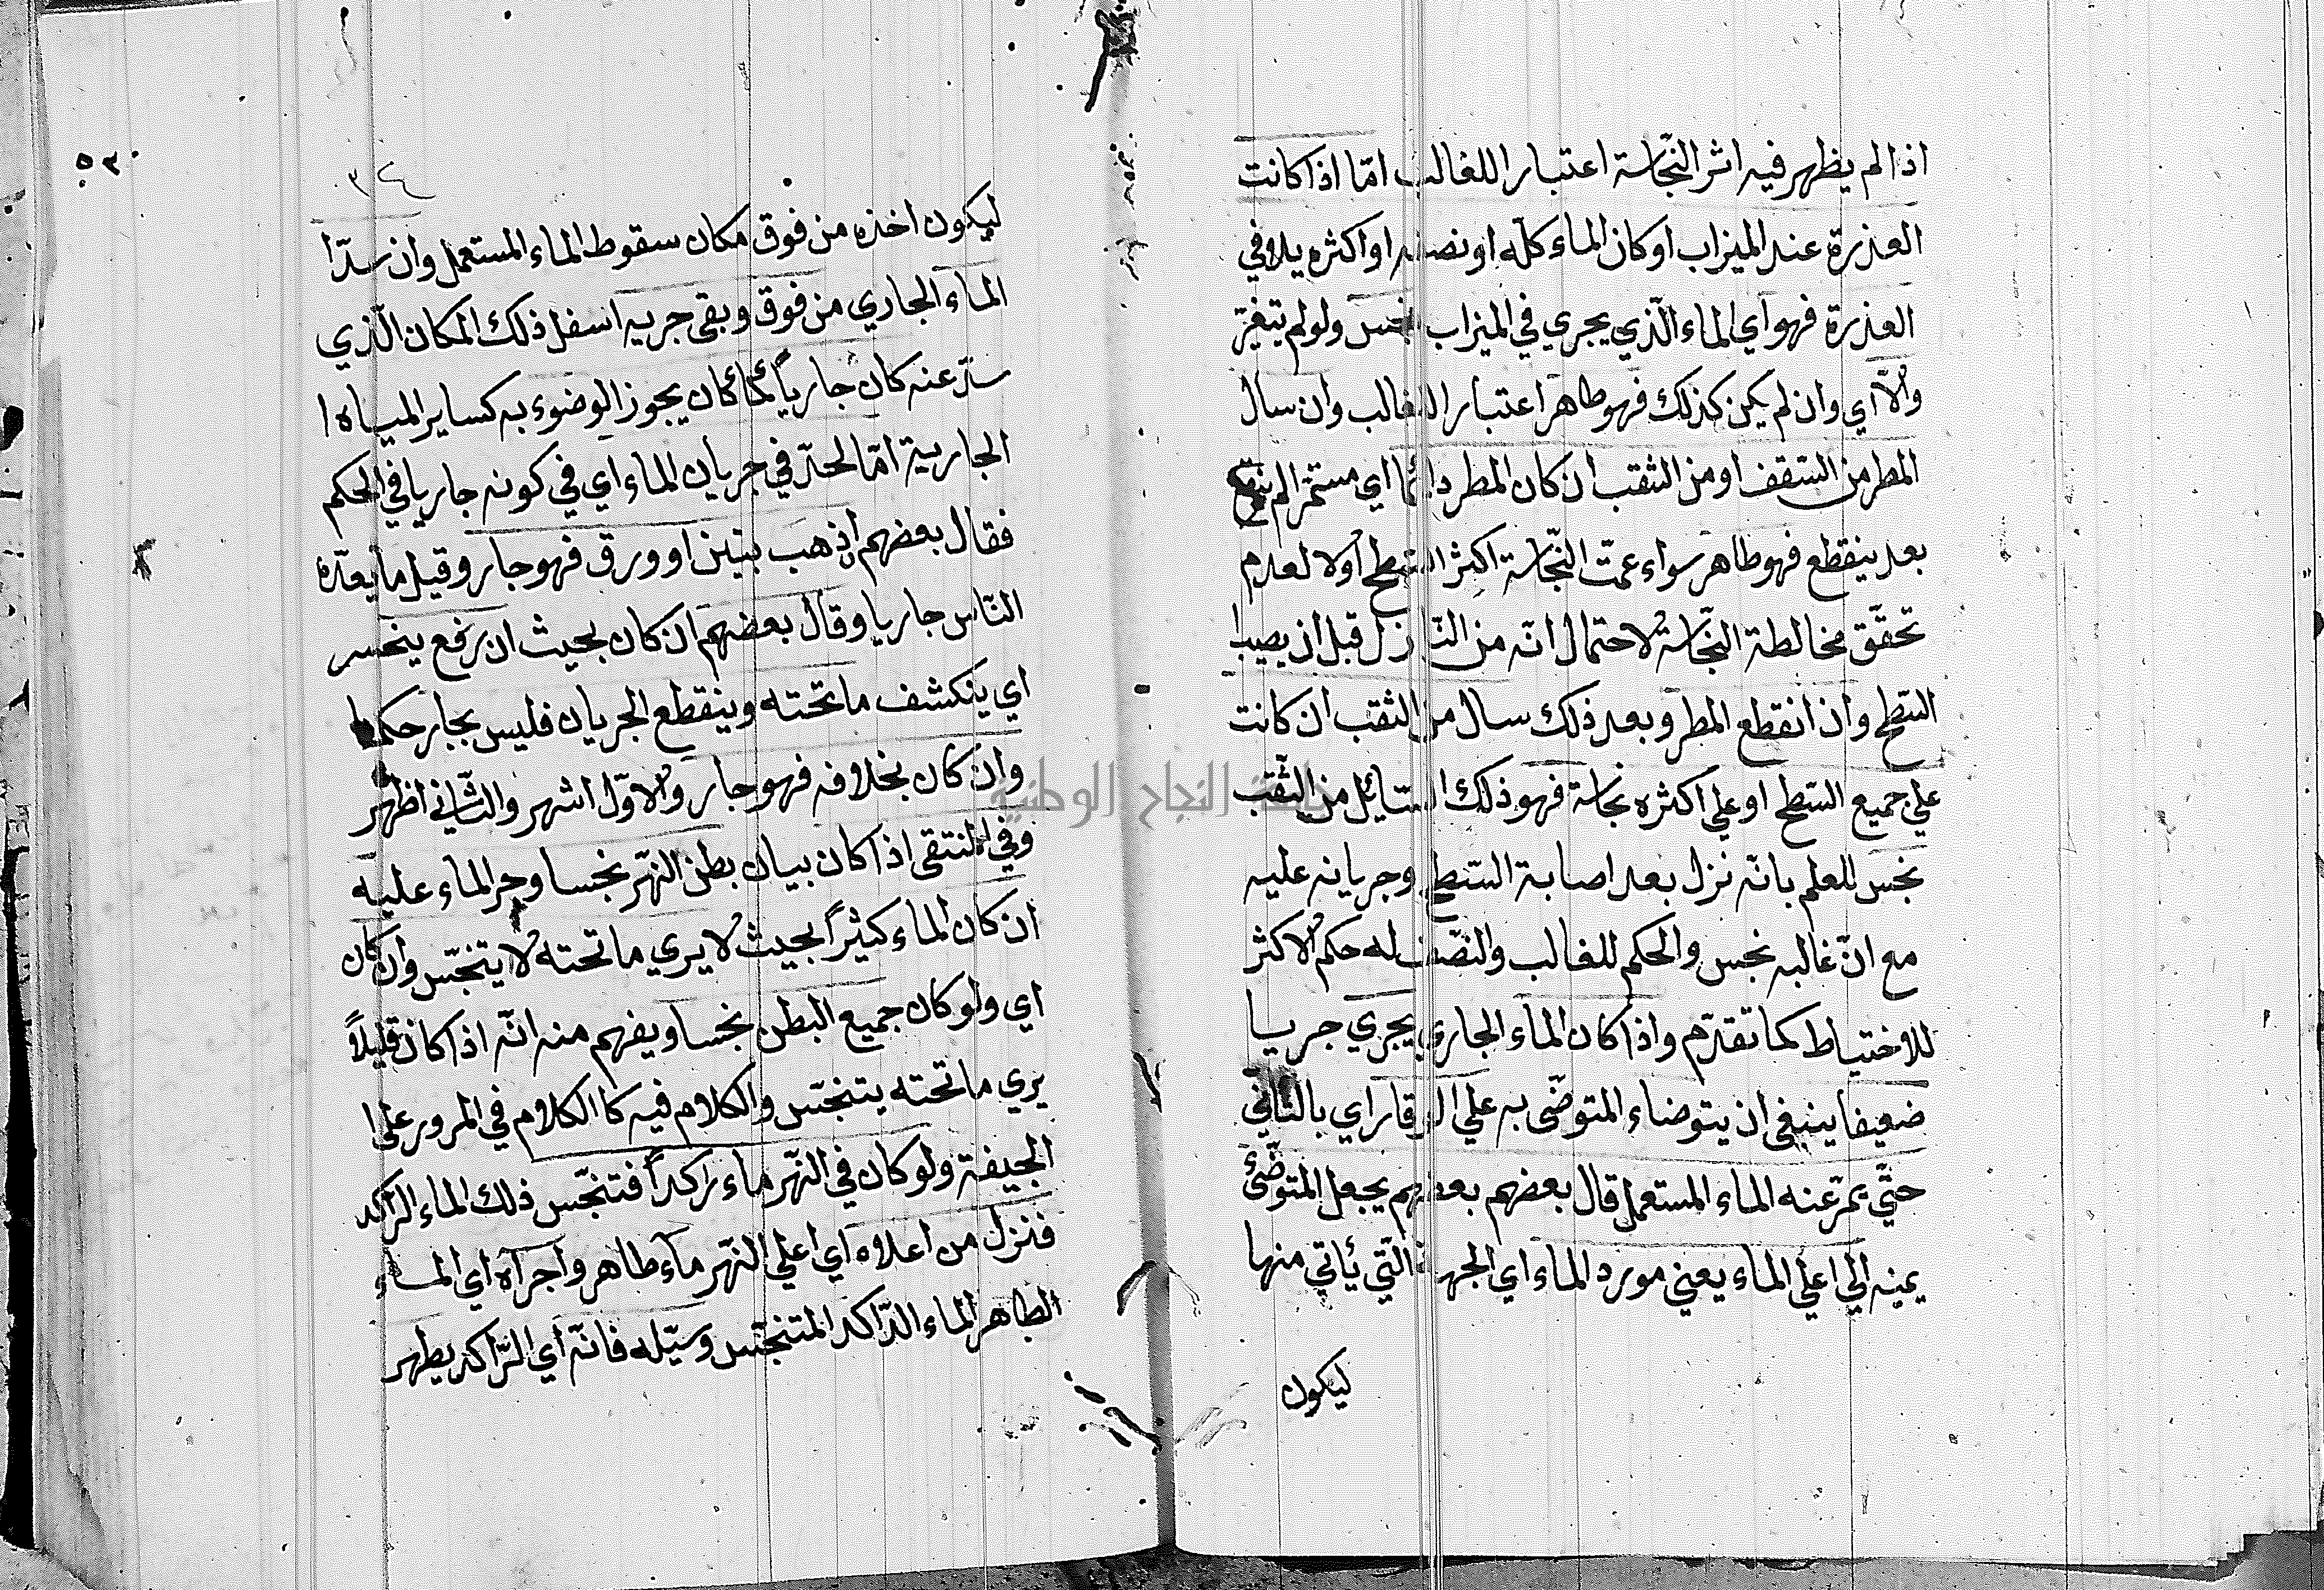 اذا لم يظهر فيه اثر النّجاسة اعتبارا للغالب امّا اذا كانت
العذرة عند الميزاب او كان الماء كلّه او نصفه او اكثره يلاقي
العذرة فهو اي الماء الّذي يجري في الميزاب نجس ولو لم يتغيّر
والّا اي وان لم يكن كذلك فهو طاهر اعتبارا للغالب وان سال
المطر من السّقف او من الثّقب ان كان المطر دائما اي مستمرّا لم ينقطع
بعد ينقطع فهو طاهر سواء عمت النّجاسة اكثر السّطح اولا لعدم
تحقّق مخالطة النّجاسة لاحتمال انّه من النّازل قبل ان يصيب
السّطح وان انقطع المطر وبعد ذلك سال من الثقب ان كانت
علي جميع السّطح او علي اكثره نجاسة فهو ذلك السّائل من الثّقب
نجس للعلم بانّه نزل بعد اصابة السّطح وجريانه عليه
مع انّ غالبه نجس والحكم للغالب والنّصف له حكم الاكثر
للاختياط كما تقدّم واذا كان الماء الجاري يجري جريا
ضعيفا ينبغي ان يتوضاء المتوضّى به علي الوقار اي بالتاني
حتّي يمرّ عنه الماء المستعمل قال بعضهم بعضهم يجعل المتوضّئ
يمينه الي اعلي الماء يعني مورد الماء اي الجهة الّتي يأتي منها
ليكون
٥٣٠
٣٤
ليكون اخذه من فوق مكان سقوط الماء المستعمل وان سدّا
الماء الجاري من فوق وبقى جريه اسفل ذلك المكان الّذي
سدّ عنه كان جارياً كما كان يجوز الوضوء به كساير المياه ا
الجارية امّا الحدّ في جريان الماء اي في كونه جاريا في الحكم
فقال بعضهم ان ذهب بتبن او ورق فهو جار وقيل ما يعدّه
النّاس جاريا وقال بعضهم ان كان بحيث ان رفع ينحسر
اي ينكشف ما تحته وينقطع الجريان فليس بجار حكما
وان كان بخلافه فهو جار والاوّل اشهر والثّاني اظهر
وفي المنتقى اذا كان بيان بطن النّهر نجسا وجر الماء عليه
ان كان الماء كثيراً بحيث لا يري ما تحته لا يتنجّس وان كان
اي ولو كان جميع البطن نجسا ويفهم منه انّه اذا كان قليلاً
يري ما تحته يتنجّس والكلام فيه كا الكلام في المرور علي ا
الجيفة ولو كان في النّهر ماء راكداً فتنجّس ذلك الماء الرّاكد
فنزل من اعلاه اي اعلي النّهر ماء طاهر واجراه اي الماء
الطاهر الماء الرّاكد المتنجّس وسيّله فانّه اي الرّاكد يطهر
جامعة النجاح الوطنية